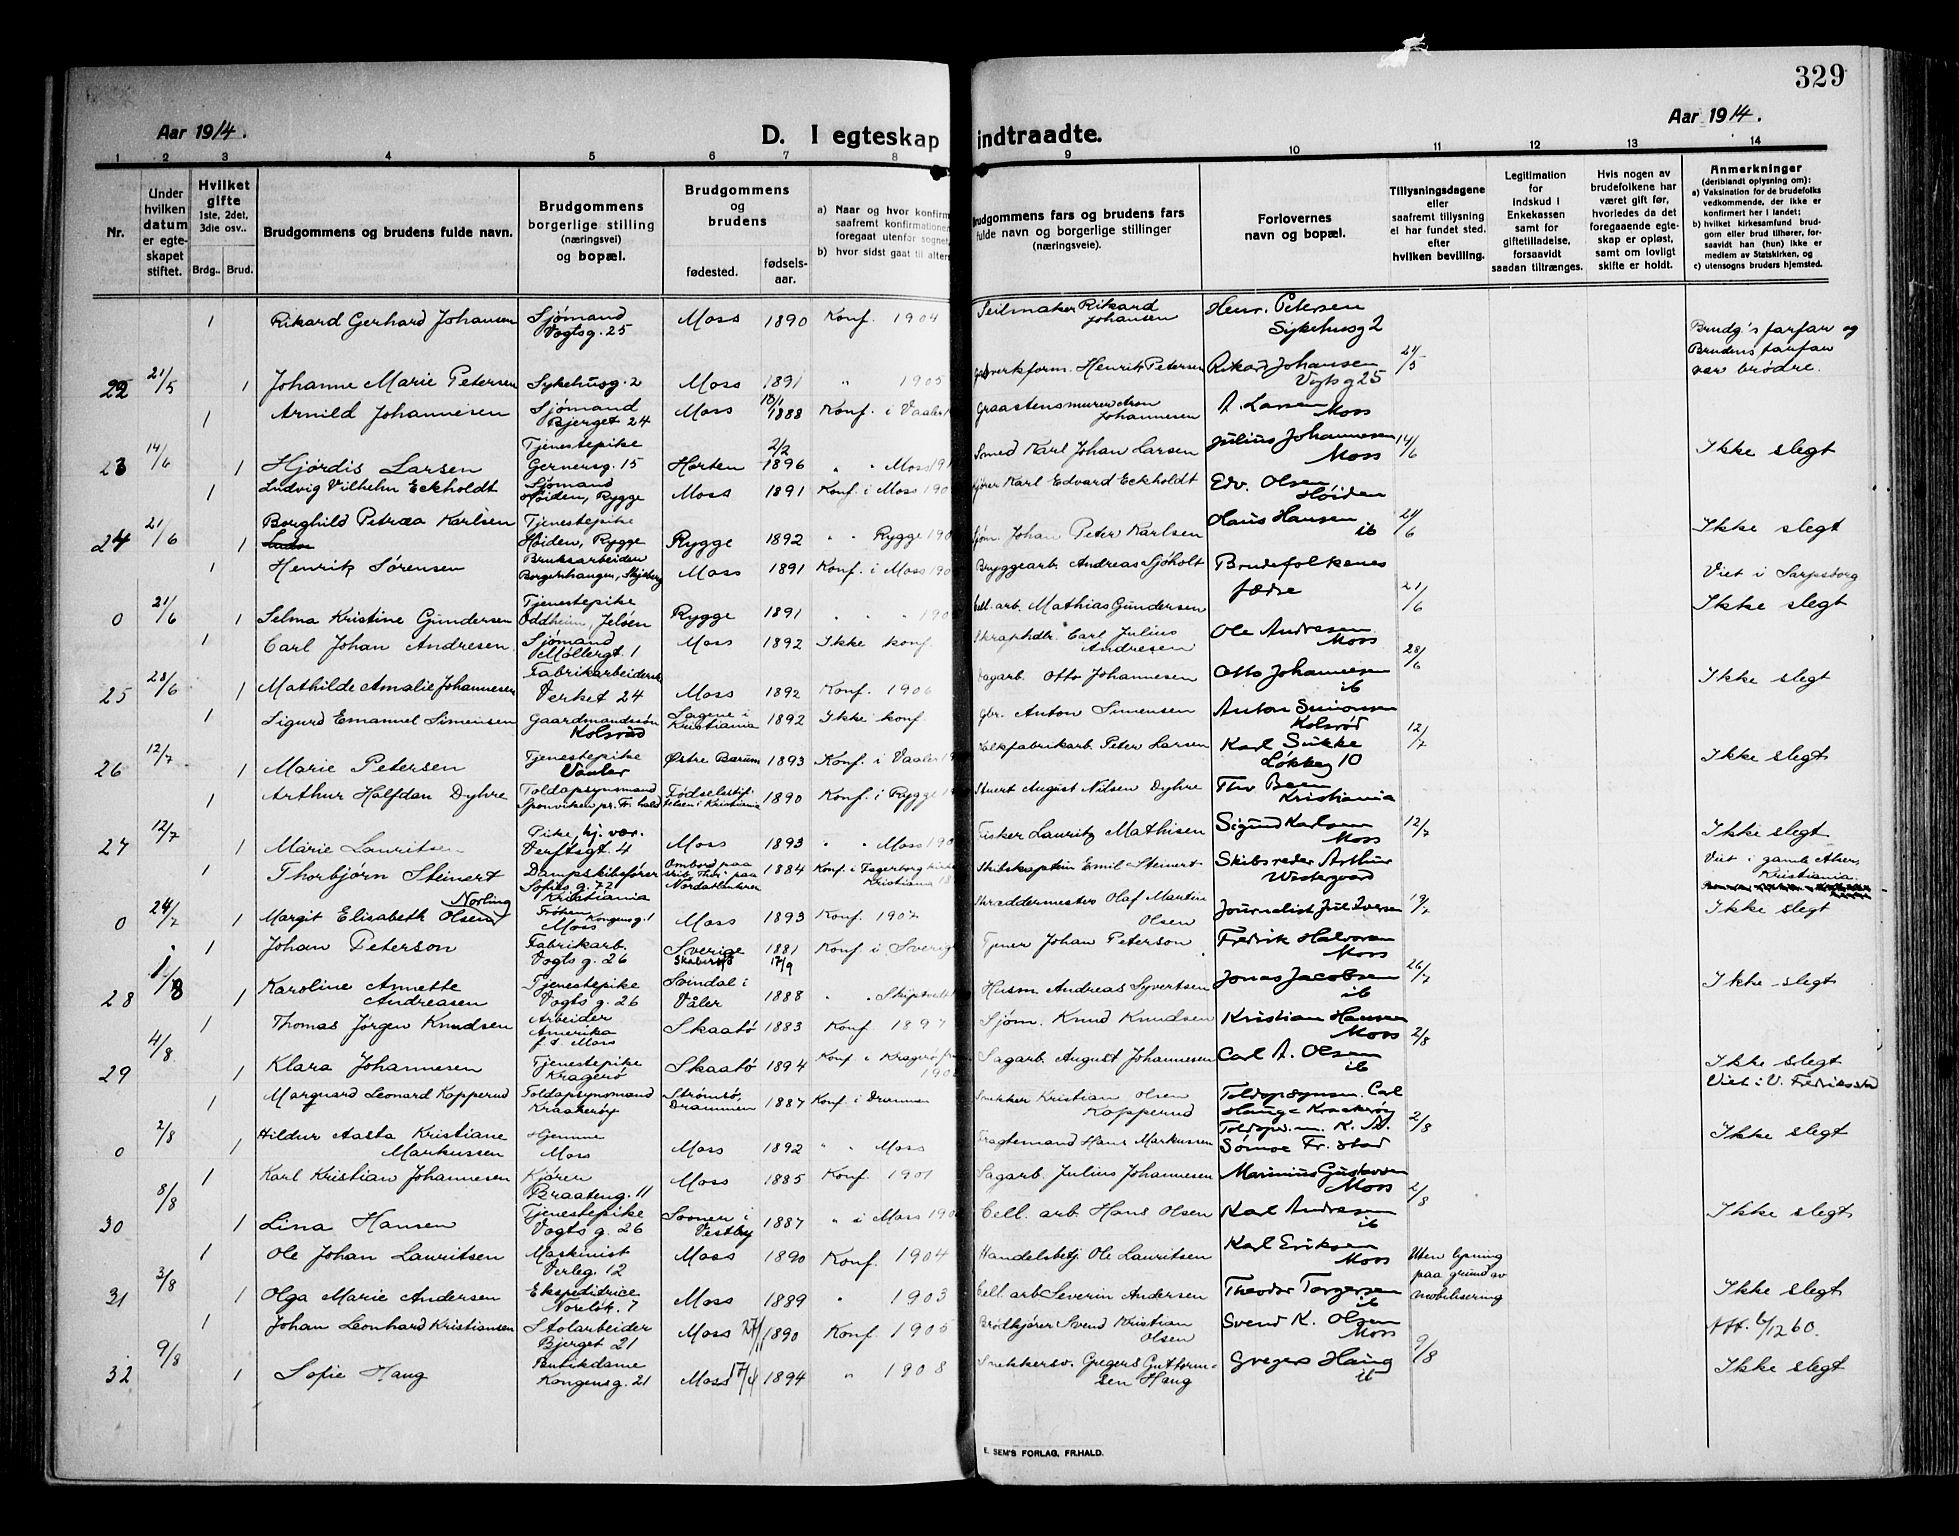 329
Aar 1914.
D. I egteskap indtraadte.
Aar 1914.
1 2 3 4 5 6 7 8 9 10 11 12 13 14
Nr.
Under hvilken datum er egteskapet stiftet.
Hvilket gifte
1ste, 2det, 3die osv..
Brdg.. Brud.
Brudgommens og brudens fulde navn.
Brudgommens borgerlige stilling (næringsvei) og bopæl.
Brudgommens og brudens
fødested. fødsels-aar.
a) Naar og hvor konfirm saafremt konfirmationen foregaat utenfor sognet,
b) hvor sidst gaat til alters
Brudgommens fars og brudens fars fulde navn og borgerlige stillinger (næringsveie).
Forlovernes navn og bopæl.
Tillysningsdagene eller saafremt tillysning ei har fundet sted. efter hvilken bevilling.
Legitimation for Indskud i Enkekassen samt for giftetilladelse, forsaavidt saadan tiltrænges.
Hvis nogen av brudefolkene har været gift før, hvorledes da det foregaaende egteskap er opløst, samt om lovligt skifte er holdt.
Anmerkninger
(deriblandt oplysning om):
a) Vaksination for de brudefolks vedkommende, der ikke er konfirmert her i landet;
b) hvilket kirkesamfund brudgom eller brud tilhører, forsaavidt han (hun) ikke er medlem av Statskirken, og
c) utensogns bruders hjemsted.
1 Rikard Gerhard Johansen Sjömand Vogtsg. 25 Moss 1890 Konf. 1904 Seilmaker Rikard Johansen Henr. Petersen Sykehusg 2
Brudg's farfar og Brudens farfar var brödre.
22 21/5 1 Johanne Marie Petersen Sykehusg. 2 Moss 1891 " 1905 verkform. Henrik Petersen Rikard Johansen Vogtsg 25 21/5
1 Arnild Johannesen Sjömand Bjerget 24 Moss 1888 Konf. i Vaaler Graastensmurer Aron Johannesen A. Larsen Moss
23 14/6 1 Hjördis Larsen Tjenestepike Gernersg. 15 Horten 2/2 1896 " " Moss Smed Karl Johan Larsen Julius Johannesen Moss 14/6 Ikke slegt
1 Ludvig Vilhelm Eckholdt Sjömand Höiden, Rygge Moss 1891 Konf. i Moss Karl Edvard Eckholdt Edv. Olsen Höiden
24 21/6 1 Borghild Petræa Karlsen Tjenestepike Höiden, Rygge Rygge 1892 " " Rygge Johan Peter Karlsen Hans Hansen ib 21/6 Ikke slegt
1 Henrik Sörensen Bruksarbeider Borgenhaugen, Skjeberg Moss 1891 Konf. i Moss Bryggearb. Andreas Sjöholt Brudefolkenes fædre Viet i Sarpsborg
0 21/6 1 Selma Kristine Gundersen Tjenestepike Oddheim, Jelöen Rygge 1891 " " Cell. arb. Mathias Gundersen 21/6 Ikke slegt
1 Carl Johan Andresen Sjömand Möllergt. 1 Moss 1892 Ikke konf. Skraphdlr. Carl Julius Andresen Ole Andresen Moss
25 28/6 1 Mathilde Amalie Johannesen Fabrikarbeiderske Verket 24 Moss 1892 Konf. 1906 Sagarb. Otto Johannesen Otto Johannesen ib 28/6 Ikke slegt
1 Sigurd Emanuel Simensen Gaardmandssön Kolsrød Sagene i Kristiania 1892 Ikke konf. Gbr. Anton Simensen Anton Simensen Kolsrød
26 12/7 1 Marie Petersen Tjenestepike Vaaler Østre Bærum 1893 Konf. i Vaaler Peter Larsen Karl Sukke Løkkeg 10 12/7 Ikke slegt
1 Arthur Halfdan Dyhre Toldopsynsmand Sponviken pr. Fr.hald Fødselsstiftelsen i Kristiania 1890 Konf. i Rygge Stuert August Nilsen Dyhre Thv Kristiania
27 12/7 1 Marie Lauritsen Pike, hj. vær. Verftsgt. 4 Moss 1893 " " Moss Fisker Lauritz Mathisen Sigurd Karlsen Moss 12/7 Ikke slegt
1 Thorbjörn Steinert Dampskibsförer Sofies g. 72 Kristiania Ombord paa Nordatlanteren 1884 Konf. i Fagerborg kirke Kristiania Skibskaptein Emil Steinert Skibsreder Arthur Westergaard Viet i gamle Akers Kristiania.
0 24/7 1 Margit Elisabeth Olsen Norling Fröken Kongensg. 1 Moss Moss 1893 Konf. 1907 Skræddermester Olaf Martin Olsen Journalist Jul. Iversen 19/7 Ikke slegt
1 Johan Peterson Fabrikarb. Vogts g. 26 Sverige 1881 17/9 Konf. i Sverige Johan Peterson Fredrik Halvorsen Moss
28 1/8 1 Karoline Annette Andreasen Tjenestepike Vogts g. 26 Våler 1888 " " Skiptvet Husm Andreas Syvertsen Jonas Jacobsen ib 26/7 Ikke slegt
1 Thomas Jörgen Knudsen Arbeider Amerika f. t. Moss Skaatö 1883 Konf. 1897 Sjöm. Knud Knudsen Kristian Hansen Moss
29 4/8 1 Klara Johannesen Tjenestepike Kragerö Skaatö 1894 Konf. i Kragerö Sagarb. August Johannesen Carl A. Olsen ib 2/8 Ikke slegt
1 Marquard Leonard Kopperud Toldopsynsmand Kraakeröy Strömsö, Drammen 1887 Konf. i Drammen Snekker Kristian Olsen Kopperud Toldopsynsm. Carl Hauge Kraakeröy Viet i V. Fredrikstad
0 2/8 1 Hildur Aasta Kristiane Markussen Hjemme Moss Moss 1892 " Moss Fragtemand Hans Markussen Toldops.m. K. A. Sömoe Fr. stad 2/8 Ikke slegt
1 Karl Kristian Johannesen Kjörer Braateng. 11 Moss 1885 Konf. 1901 Sagarb. Julius Johannesen Marinius Gustavsen Moss
30 8/8 1 Lina Hansen Tjenestepike Vogts g. 26 Vestby 1887 " i Moss Cell. arb. Hans Olsen Karl Andresen ib 2/8 Ikke slegt
1 Ole Johan Lauritsen Maskinist Verleg. 12 Moss 1890 Konf. 1904 Handelsbetj. Ole Lauritsen Karl Eriksen Moss Uten lysning paa grund av mobilisering
31 3/8 1 Olga Marie Andersen Ekspeditrice 7 Moss 1889 " 1903 Cell arb Severin Andersen Theodor Torgersen ib Ikke slegt
1 Johan Leonhard Kristiansen Stolarbeider Bjerget 21 Moss 27/11 1890 Konf. 1905 Brödkjörer Svend Kristian Olsen Svend K. Olsen Moss Att. 6/12 60.
32 9/8 1 Sofie Haug Butikdame Kongensg. 21 Moss 17/4 1894 " 1908 Snekkersv. Gregers Guttormsen Haug Gregers Haug ib 9/8 Ikke slegt
E. SEM'S FORLAG, FR.HALD.